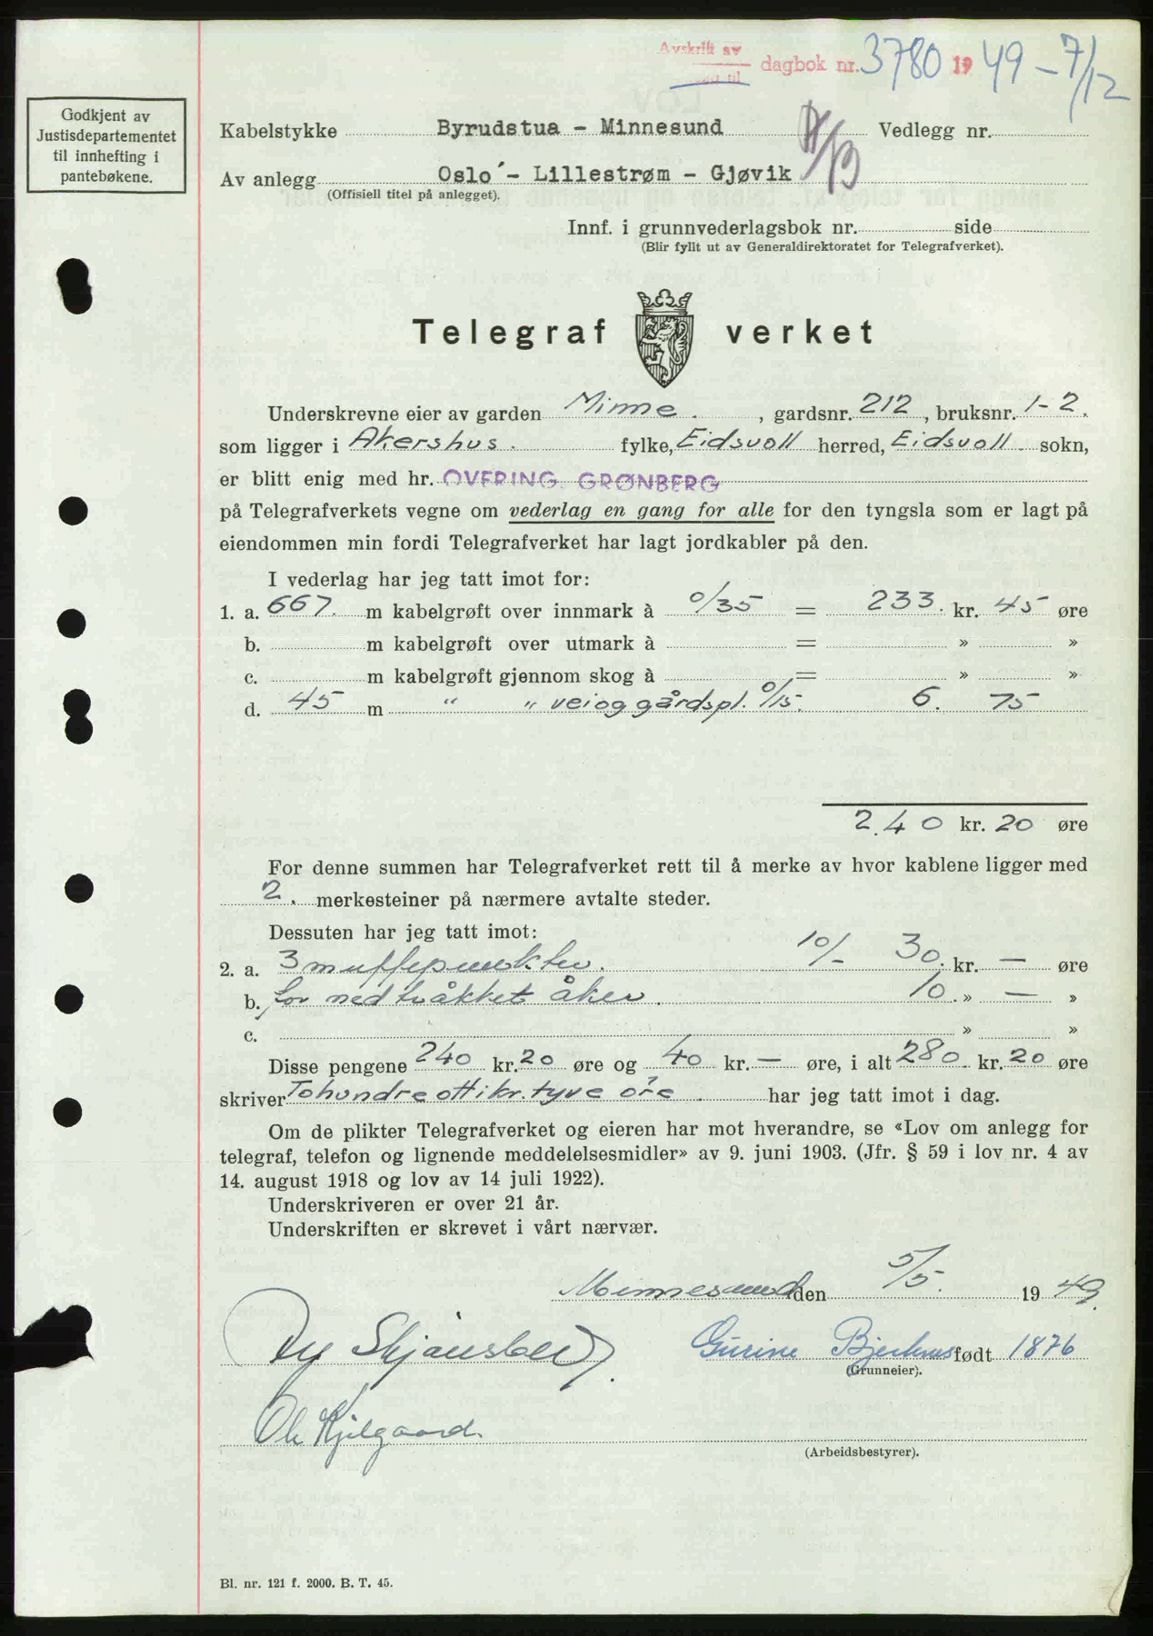 Avskrift av
dagbok nr. 3780 1949 - 7/12
Godkjent av
Justisdepartementet
til innhefting i
pantebøkene.
Kabelstykke Byrudstua - Minnesund Vedlegg nr.
Av anlegg Oslo - Lillestrøm - Gjøvik
(Offisiell titel på anlegget).
Innf. i grunnvederlagsbok nr. side
(Blir fyllt ut av Generaldirektoratet for Telegrafverket).
Telegraf verket
Underskrevne eier av garden Minne. , gardsnr. 212 , bruksnr. 1-2.
som ligger i Akershus. fylke, Eidsvoll herred, Eidsvoll. sokn,
er blitt enig med hr. OVERING. GRØNBERG
på Telegrafverkets vegne om vederlag en gang for alle for den tyngsla som er lagt på
eiendommen min fordi Telegrafverket har lagt jordkabler på den.
I vederlag har jeg tatt imot for:
1. a. 667. m kabelgrøft over innmark à 0/35 = 233. kr. 45 øre
b. m kabelgrøft over utmark à = » »
c. m kabelgrøft gjennom skog à = » »
d. 45 m " " vei og gårdspl. 0/15. 6. 75
240 kr. 20 øre
For denne summen har Telegrafverket rett til å merke av hvor kablene ligger med
2. merkesteiner på nærmere avtalte steder.
Dessuten har jeg tatt imot:
2. a. 3 muffepunkter. 10/- 30. kr. — øre
b. for nedtråkket åker. 10. » — »
c. » »
Disse pengene 240 kr. 20 øre og 40 kr. — øre, i alt 280. kr. 20 øre
skriver Tohundreottikr. tyve øre. har jeg tatt imot i dag.
Om de plikter Telegrafverket og eieren har mot hverandre, se «Lov om anlegg for
telegraf, telefon og lignende meddelelsesmidler» av 9. juni 1903. (Jfr. § 59 i lov nr. 4 av
14. august 1918 og lov av 14 juli 1922).
Underskriveren er over 21 år.
Underskriften er skrevet i vårt nærvær.
Minnesund den 5/5. 1949.
Gurine Bjerknes født 1876
(Grunneier).
Ole Kjilgaard.
(Arbeidsbestyrer).
Bl. nr. 121 f. 2000. B. T. 45.